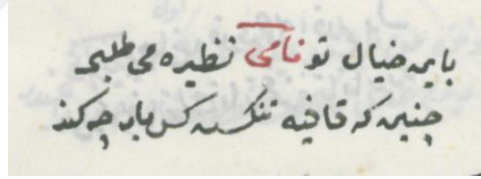 باین خیال تو نامی نظیره می طلبی
چنین که قافیه تنگست کس باید چه کند